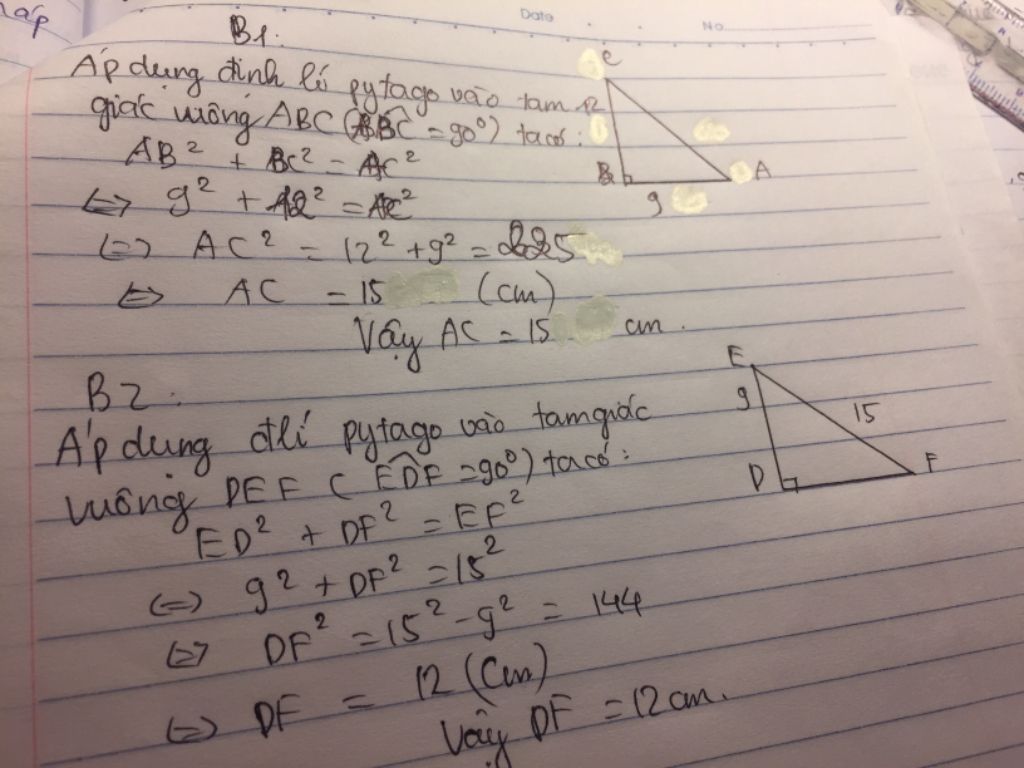 Date No
B1.
Áp dụng định lí pytago vào tam
giác vuông ABC (ABC = 90°) ta có:
AB² + BC² = AC²
⇔ 9² + 12² = AC²
⇔ AC² = 12² + 9² = 225
⇔ AC = 15 (cm)
Vậy AC = 15 cm.
C
12
B
A
9
B2.
Áp dụng đlí pytago vào tam giác
vuông DEF (EDF = 90°) ta có:
ED² + DF² = EF²
⇔ 9² + DF² = 15²
⇔ DF² = 15² - 9² = 144
⇔ DF = 12 (cm)
Vậy DF = 12 cm.
E
9
15
D
F